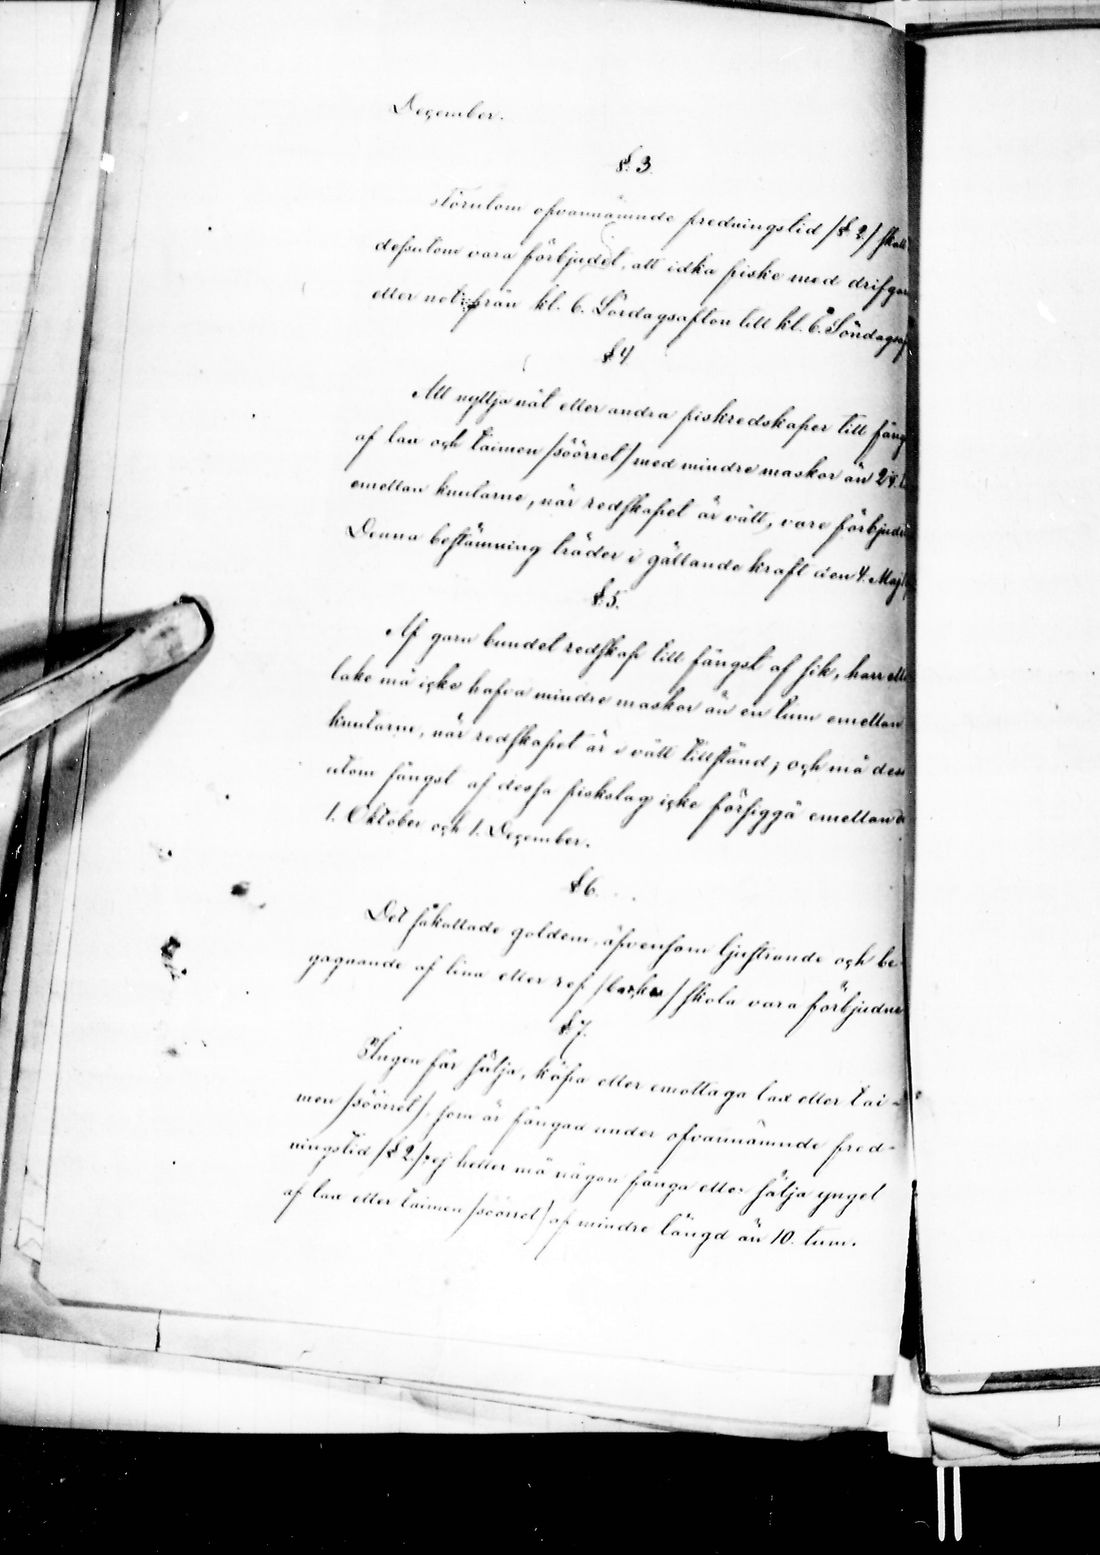 December.
§. 3.
Förutom ofvannämnde fredningstid /§ 2./ skall
dessutom vara förbjudet, att idka fiske med drifgarn
eller not från kl. 6. Lördagsafton till kl. 6. Söndagsaf
§ 4
Att nyttja nät eller andra fiskredskaper till fång
af lax och taimen /söörret/ med mindre maskor än 2¼ t
emellan knutarne, när redskapet är vått, vare förbjudit
Denna bestämning träder i gällande kraft den 4. Maj
§ 5.
Af garn bundet redskap till fångst af sik, harr elle
lake må icke hafva mindre maskor än en tum emellan
knutarne, när redskapet är i vått tillstånd; och må dess
utom fångst af dessa fiskslag icke försiggå emellan d
1. Oktober och 1. December.
§ 6.
Det såkallade goldem, äfvensom ljustrande och be-
gagnande af lina eller ref /backa/ skola vara förbjudne
§ 7.
Ingen får sälja, köpa eller emottaga lax eller tai-
men /söörret/, som är fångad under ofvannämnde fred-
ningstid /§ 2./; ej heller må någon fånga eller sälja yngel
af lax eller taimen /söörret/ af mindre längd än 10. tum.